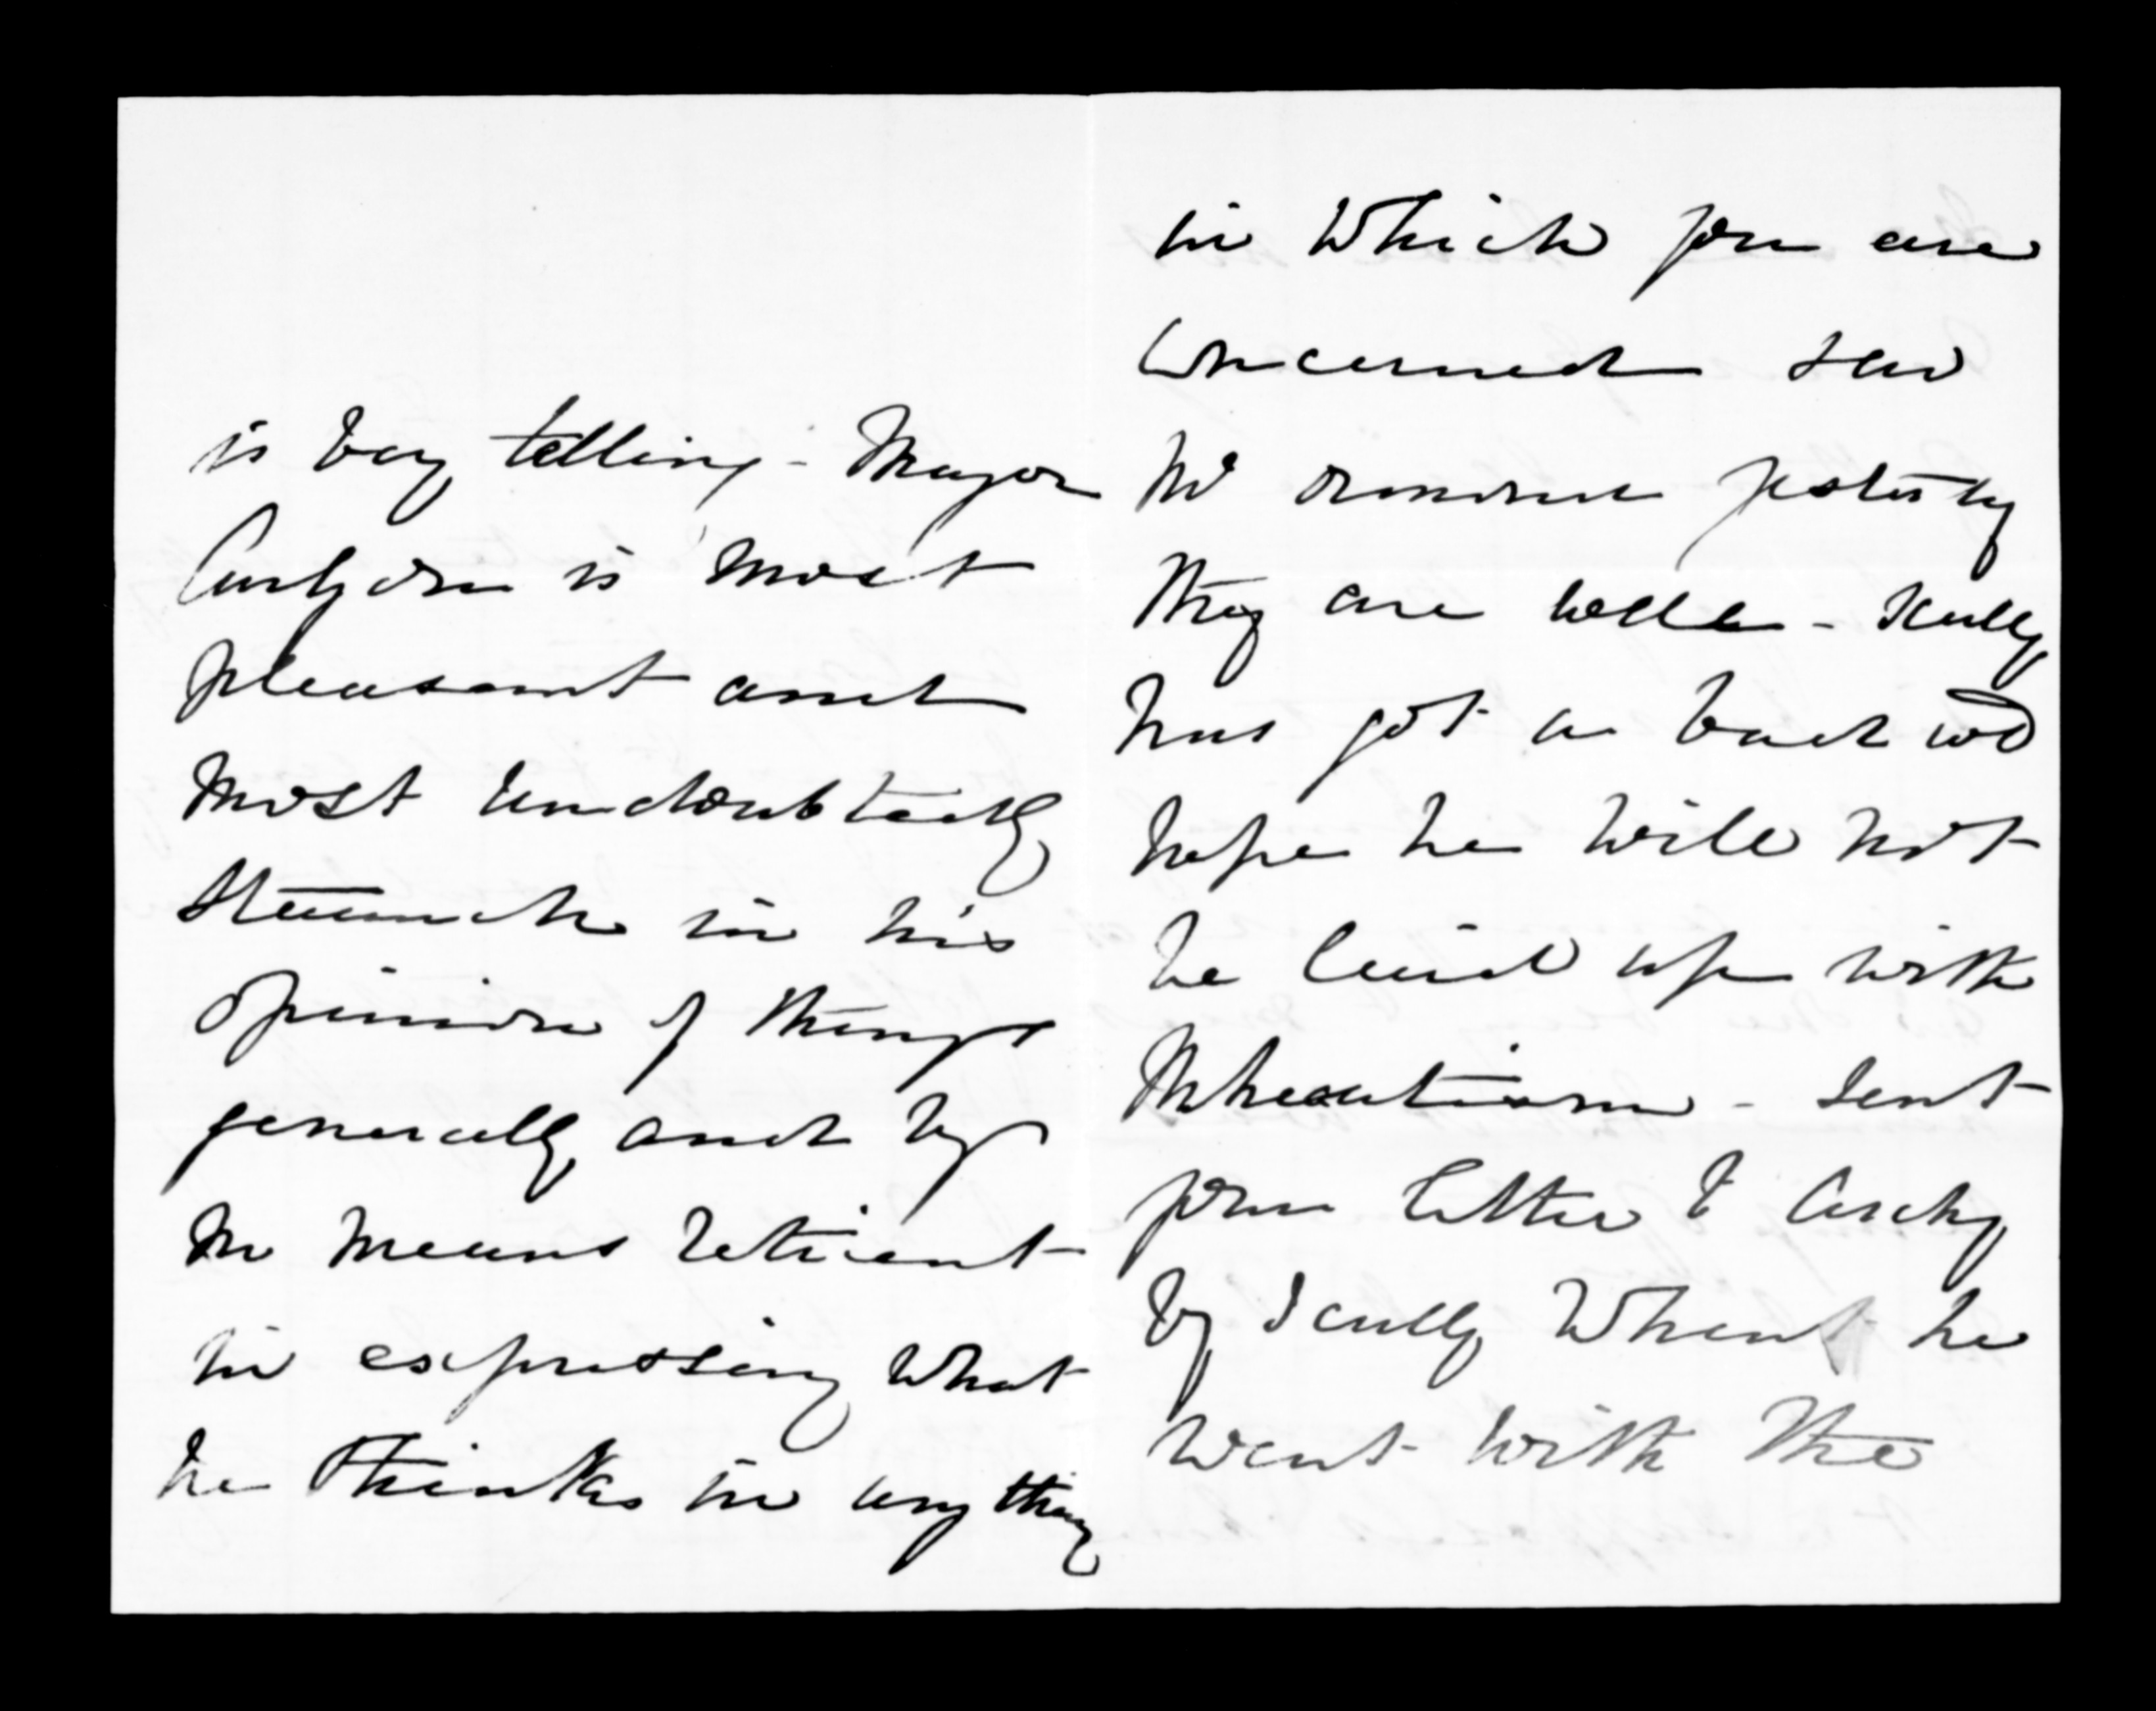 is very telling - Mayor
is most
pleasant and
most undoubtedly
staunch in his
opinion of things
generally and by
no means reticent
in expressing what
he thinks in anything
in which you are
concerned saw
Mrs Ormond yesterday
They are well - Scully
has got a bad cold
hope he will not
be laid up with
Rheumatism - sent
your letter &
by Scully when he
went with the